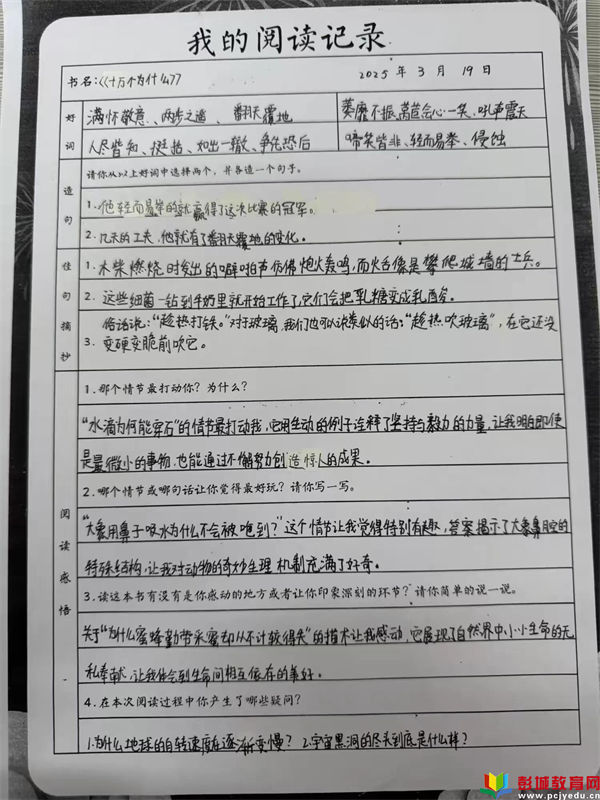 我的阅读记录
书名:《十万个为什么》 2025 年 3 月 19 日
好词
满怀敬意、两步之遥、翻天覆地
萎靡不振、莴苣会心一笑、吼声震天
人尽皆知、挺拔、如出一辙、争先恐后
啼笑皆非、轻而易举、侵蚀
造句
请你从以上好词中选择两个,并各造一个句子。
1.他轻而易举的就赢得了这次比赛的冠军。
2.几天的工夫,他就有了翻天覆地的变化。
佳句摘抄
1.木柴燃烧时发出的噼啪声仿佛炮火轰鸣,而火舌像是攀爬城墙的士兵。
2.这些细菌一钻到牛奶里就开始工作了,它们会把乳糖变成乳酸。
俗话说:“趁热打铁。”对于玻璃,我们也可以说类似的话:“趁热吹玻璃”,在它还没
3.变硬变脆前吹它。
阅读感悟
1.那个情节最打动你?为什么?
“水滴为何能穿石”的情节最打动我,它用生动的例子诠释了坚持与毅力的力量,让我明白即使
是最微小的事物,也能通过不懈努力创造惊人的成果。
2.哪个情节或哪句话让你觉得最好玩?请你写一写。
“大象用鼻子吸水为什么不会被呛到?”这个情节让我觉得特别有趣,答案揭示了大象鼻腔的
特殊结构,让我对动物的奇妙生理机制充满了好奇。
3.读这本书有没有是你感动的地方或者让你印象深刻的环节?请你简单的说一说。
关于“为什么蜜蜂勤劳采蜜却从不计较得失”的描术让我感动,它展现了自然界中小小生命的无
私奉献,让我体会到生命间相互依存的美好。
4.在本次阅读过程中你产生了哪些疑问?
1.为什么地球的自转速度在逐渐变慢?2.宇宙黑洞的尽头到底是什么样?
彭城教育网
www.pcjyedu.cn